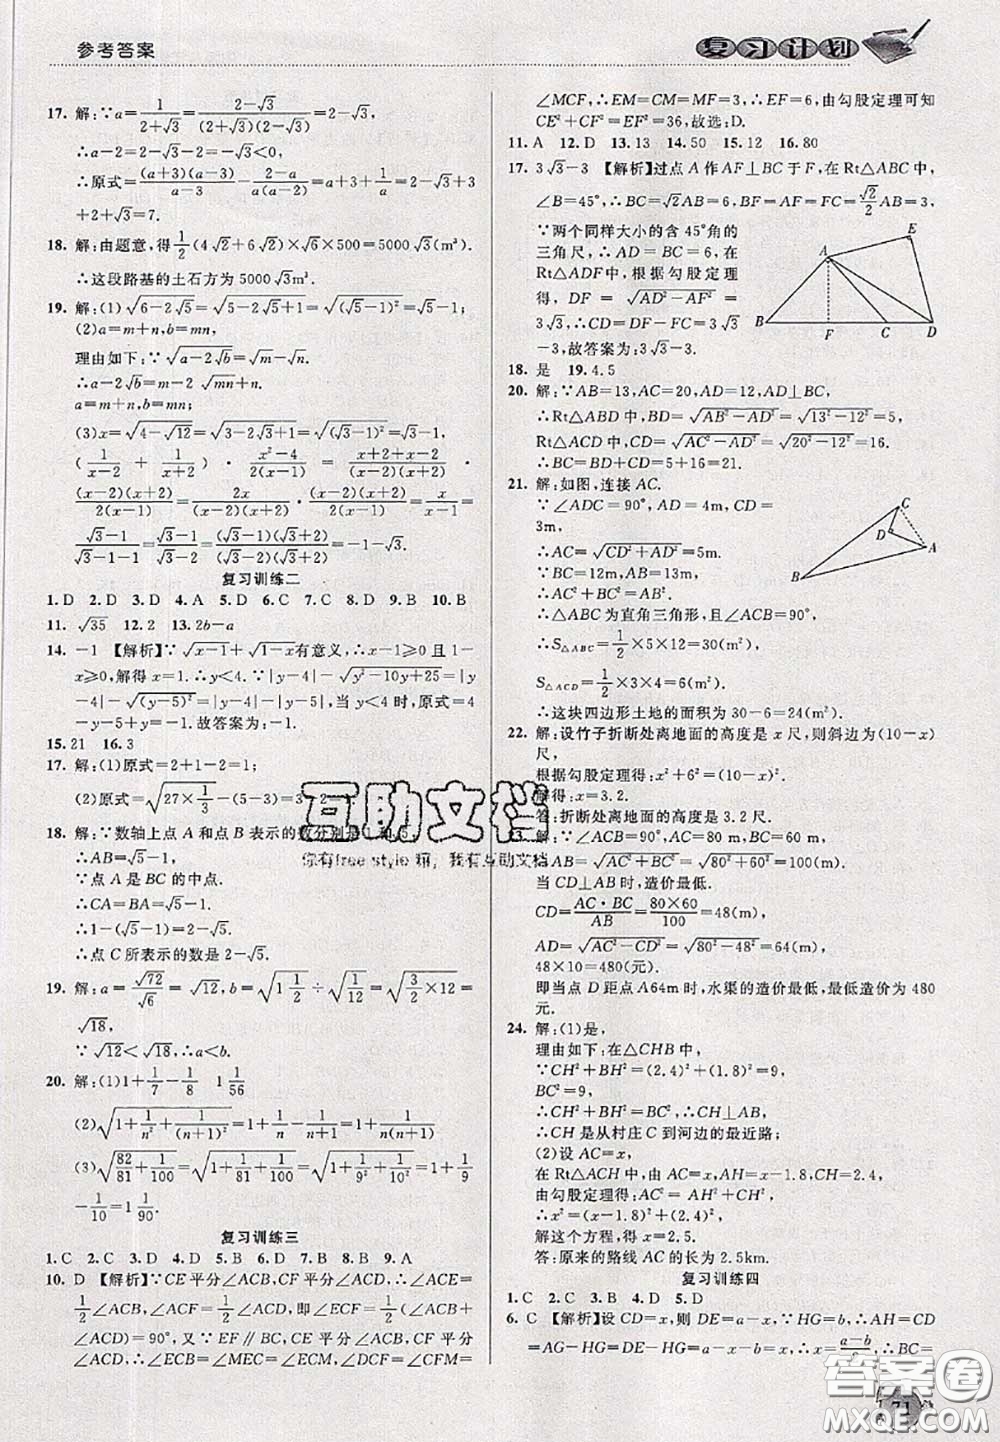 参考答案
复习计划
17. 解:∵a=1/(2+√3)=(2-√3)/((2+√3)(2-√3))=2-√3,
∴a-2=2-√3-2=-√3<0,
∴原式=(a+3)(a-3)/(a-3)-(2-a)/(a(2-a))=a+3+1/a=2-√3+3
+2+√3=7.
18. 解:由题意,得1/2(4√2+6√2)×√6×500=5000√3(m³).
∴这段路基的土石方为5000√3m³.
19. 解:(1)√(6-2√5)=√(5-2√5+1)=√((√5-1)²)=√5-1;
(2)a=m+n,b=mn,
理由如下:∵√(a-2√b)=√m-√n,
∴a-2√b=m-2√(mn)+n.
∴a=m+n,b=mn;
(3)x=√(4-√12)=√(3-2√3+1)=√((√3-1)²)=√3-1,
(1/(x-2)+1/(x+2))·(x²-4)/(2(x-1))=(x+2+x-2)/((x-2)(x+2))·
(x-2)(x+2)/(2(x-1))=2x/((x-2)(x+2))·(x-2)(x+2)/(2(x-1))=x/(x-1)=
(√3-1)/(√3-1-1)=(√3-1)/(√3-2)=(√3-1)(√3+2)/((√3-2)(√3+2))=-1-√3.
复习训练二
1. D 2. D 3. D 4. A 5. D 6. C 7. C 8. D 9. B 10. B
11. √35 12. 2 13. 2b-a
14. -1 【解析】∵√(x-1)+√(1-x)有意义,∴x-1≥0 且 1-
x≥0,解得 x=1.∴y<4.∴|y-4|-√(y²-10y+25)=|y
-4|-√((y-5)²)=|y-4|-|y-5|,当 y<4 时,原式=
4-y-5+y=-1.故答案为:-1.
15. 21 16. 3
17. 解:(1)原式=2+1-2=1;
(2)原式=√(27×1/3)-(5-3)=3-2
18. 解:∵数轴上点 A 和点 B 表示的数分别是
∴AB=√5-1.
∵点 A 是 BC 的中点.
∴CA=BA=√5-1.
∴1-(√5-1)=2-√5.
∴点 C 所表示的数是 2-√5.
19. 解:a=√72/√6=√12,b=√(1 1/2)÷√(1/12)=√(3/2×12)=
√18,
∵√12<√18,∴a<b.
20. 解:(1)1+1/7-1/8 1 1/56
(2)√(1+1/n²+1/(n+1)²)=1+1/n-1/(n+1)=1+1/(n(n+1))
(3)√(82/81+1/100)=√(1+1/81+1/100)=√(1+1/9²+1/10²)=1+1/9
-1/10=1 1/90.
复习训练三
1. C 2. C 3. D 4. D 5. D 6. D 7. B 8. B 9. A
10. D 【解析】∵CE 平分∠ACB,CF 平分∠ACD,∴∠ACE
=1/2∠ACB,∠ACF=1/2∠ACD,即∠ECF=1/2(∠ACB+
∠ACD)=90°,又∵EF∥BC,CE 平分∠ACB,CF 平分
∠ACD,∴∠ECB=∠MEC=∠ECM,∠DCF=∠CFM=
∠MCF,∴EM=CM=MF=3,∴EF=6,由勾股定理可知
CE²+CF²=EF²=36,故选:D.
11. A 12. D 13. 13 14. 50 15. 12 16. 80
17. 3√3-3 【解析】过点 A 作 AF⊥BC 于 F,在 Rt△ABC 中,
∠B=45°,∴BC=√2AB=6,BF=AF=√2/2AB=3,
∵两个同样大小的含 45°角的
三角尺,∴AD=BC=6,在
Rt△ADF 中,根据勾股定理
得,DF=√(AD²-AF²)=
3√3,∴CD=DF-FC=3√3
-3,故答案为:3√3-3.
A
E
B
F
C
D
18. 是 19. 4.5
20. 解:∵AB=13,AC=20,AD=12,AD⊥BC,
∴Rt△ABD 中,BD=√(AB²-AD²)=√(13²-12²)=5,
Rt△ACD 中,CD=√(AC²-AD²)=√(20²-12²)=16.
∴BC=BD+CD=5+16=21.
21. 解:如图,连接 AC.
∵∠ADC=90°,AD=4m,CD=
3m,
∴AC=√(CD²+AD²)=5m.
∵BC=12m,AB=13m,
∴AC²+BC²=AB².
∴△ABC 为直角三角形,且∠ACB=90°,
∴S△ABC=1/2×5×12=30(m²),
S△ACD=1/2×3×4=6(m²).
∴这块四边形土地的面积为 30-6=24(m²).
C
D
A
B
22. 解:设竹子折断处离地面的高度是 x 尺,则斜边为(10-x)
尺,
根据勾股定理得:x²+6²=(10-x)²
解得:x=3.2.
答:折断处离地面的高度是 3.2 尺.
23. 解:∵∠ACB=90°,AC=80m,BC=60m,
∴AB=√(AC²+BC²)=√(80²+60²)=100(m).
当 CD⊥AB 时,造价最低.
CD=AC·BC/AB=80×60/100=48(m),
AD=√(AC²-CD²)=√(80²-48²)=64(m),
48×10=480(元).
即当点 D 距点 A64m 时,水渠的造价最低,最低造价为 480
元.
24. 解:(1)是,
理由如下:在△CHB 中,
∵CH²+BH²=(2.4)²+(1.8)²=9,
BC²=9,
∴CH²+BH²=BC²,
∴CH 是从村庄 C 到河边的最近路;
(2)设 AC=x,
在 Rt△ACH 中,由 AC=x,AH=x-1.8,CH=2.4,
由勾股定理得:AC²=AH²+CH²,
∴x²=(x-1.8)²+(2.4)²,
解这个方程,得 x=2.5.
答:原来的路线 AC 的长为 2.5km.
复习训练四
1. C 2. C 3. B 4. D 5. D
6. C 【解析】设 CD=x,则 DE=a-x,∵HG=b,∴AH=CD
=AG-HG=DE-HG=a-x-b=x,∴x=(a-b)/2,∴BC=
互助文档
你有free style 稿，我有互助文档
答案圈
MXQE.COM
71